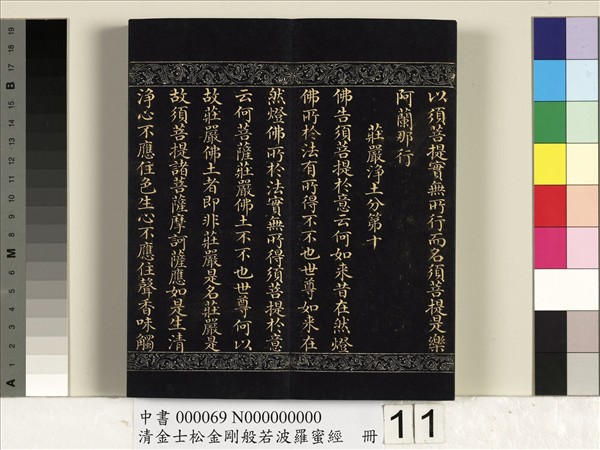 以須菩提實無所行而名須菩提是樂
阿蘭那行
莊嚴淨土分第十
佛告須菩提於意云何如來昔在然燈
佛所於法有所得不不也世尊如來在
然燈佛所於法實無所得須菩提於意
云何菩薩莊嚴佛土不不也世尊何以
故莊嚴佛土者即非莊嚴是名莊嚴是
故須菩提諸菩薩摩訶薩應如是生清
淨心不應住色生心不應住聲香味觸
A 1 2 3 4 5 6 M 8 9 10 11 12 13 14 15 B 17 18 19
中書 000069 N000000000
清金士松金剛般若波羅蜜經 冊 11